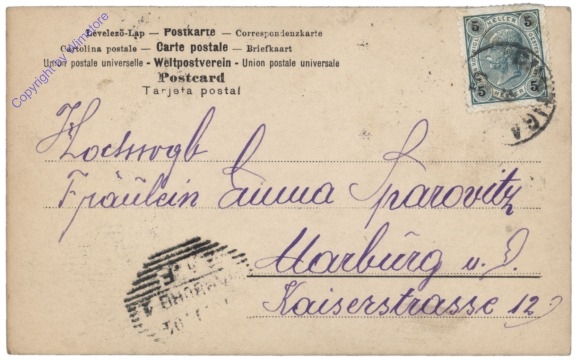 Levelező-Lap — Postkarte — Correspondenzkarte
Cartolina postale — Carte postale — Briefkaart
Union postale universelle — Weltpostverein — Union postale universale
Postcard
Tarjeta postal
5 HELLER 5
5 5
Copyright by Alimatore
Hochwgb
Fräulein Emma Sparovitz
Marburg a. D.
Kaiserstrasse 12